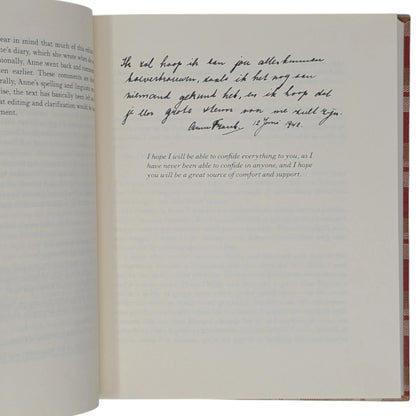 ear in mind that much of this
ne's diary, which she wrote
ionally, Anne went back and
en earlier. These comments are
Anne's spelling and
ise, the text has basically been
at editing and clarification would
ment.
Ik zal hoop ik aan jou alles kunnen
toevertrouwen, zoals ik het nog aan
niemand gekund heb, en ik hoop dat
je een grote steun voor me zult zijn.
Anne Frank. 12 Juni 1942.
I hope I will be able to confide everything to you, as I
have never been able to confide in anyone, and I hope
you will be a great source of comfort and support.